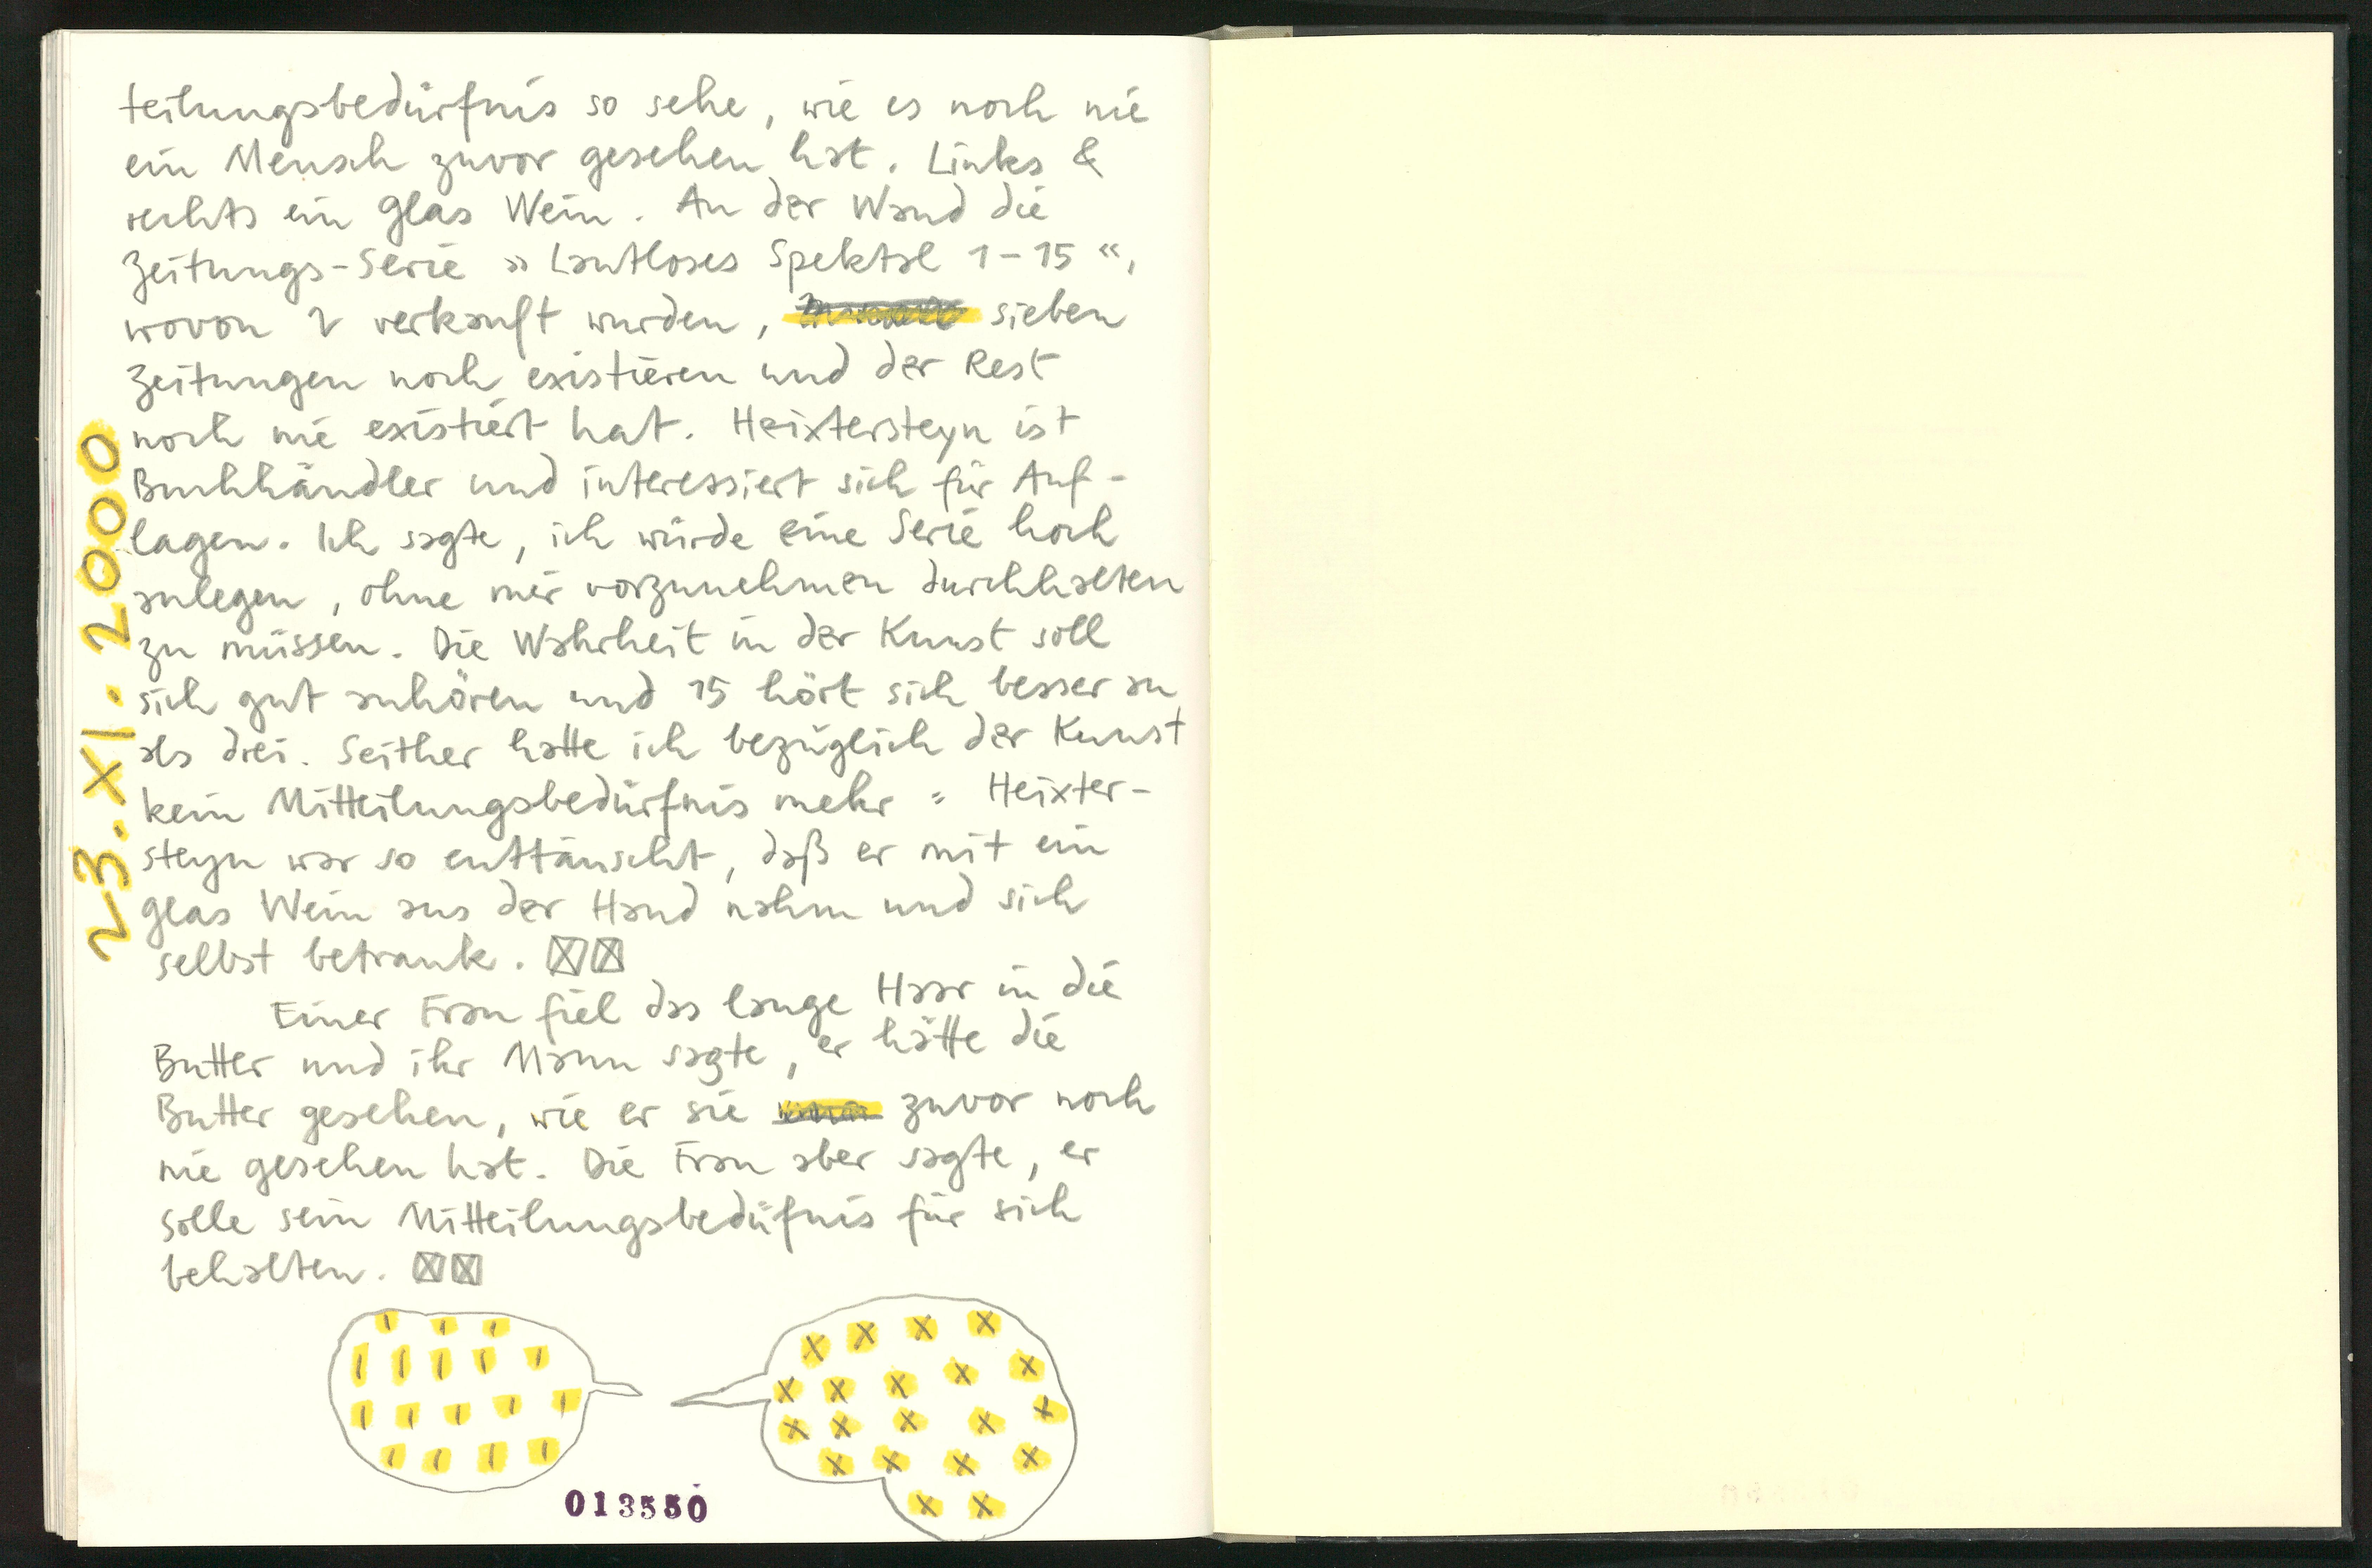 teilungsbedürfnis so sehe, wie es noch nie
ein Mensch zuvor gesehen hat. Links &
rechts ein Glas Wein. An der Wand die
Zeitungs-Serie »Lautloses Spektal 1-15«,
wovon 2 verkauft wurden, sieben
Zeitungen noch existieren und der Rest
noch nie existiert hat. Heixtersteyn ist
Buchhändler und interessiert sich für Auf-
lagen. Ich sagte, ich würde eine Serie hoch
anlegen, ohne mir vorzunehmen durchhalten
zu müssen. Die Wahrheit in der Kunst soll
sich gut anhören und 15 hört sich besser an
als drei. Seither hatte ich bezüglich der Kunst
kein Mitteilungsbedürfnis mehr = Heixter-
steyn war so enttäuscht, daß er mit ein
Glas Wein aus der Hand nahm und sich
selbst betrank. ☒☒
Einer Frau fiel das lange Haar in die
Butter und ihr Mann sagte, er hätte die
Butter gesehen, wie er sie zuvor noch
nie gesehen hat. Die Frau aber sagte, er
solle sein Mitteilungsbedüfnis für sich
behalten. ☒☒
23. XI. 2000
I I I
I I I I I
I I I I I
I I I I
X X X X
X X X X X
X X X X X
X X X X
X X
013550